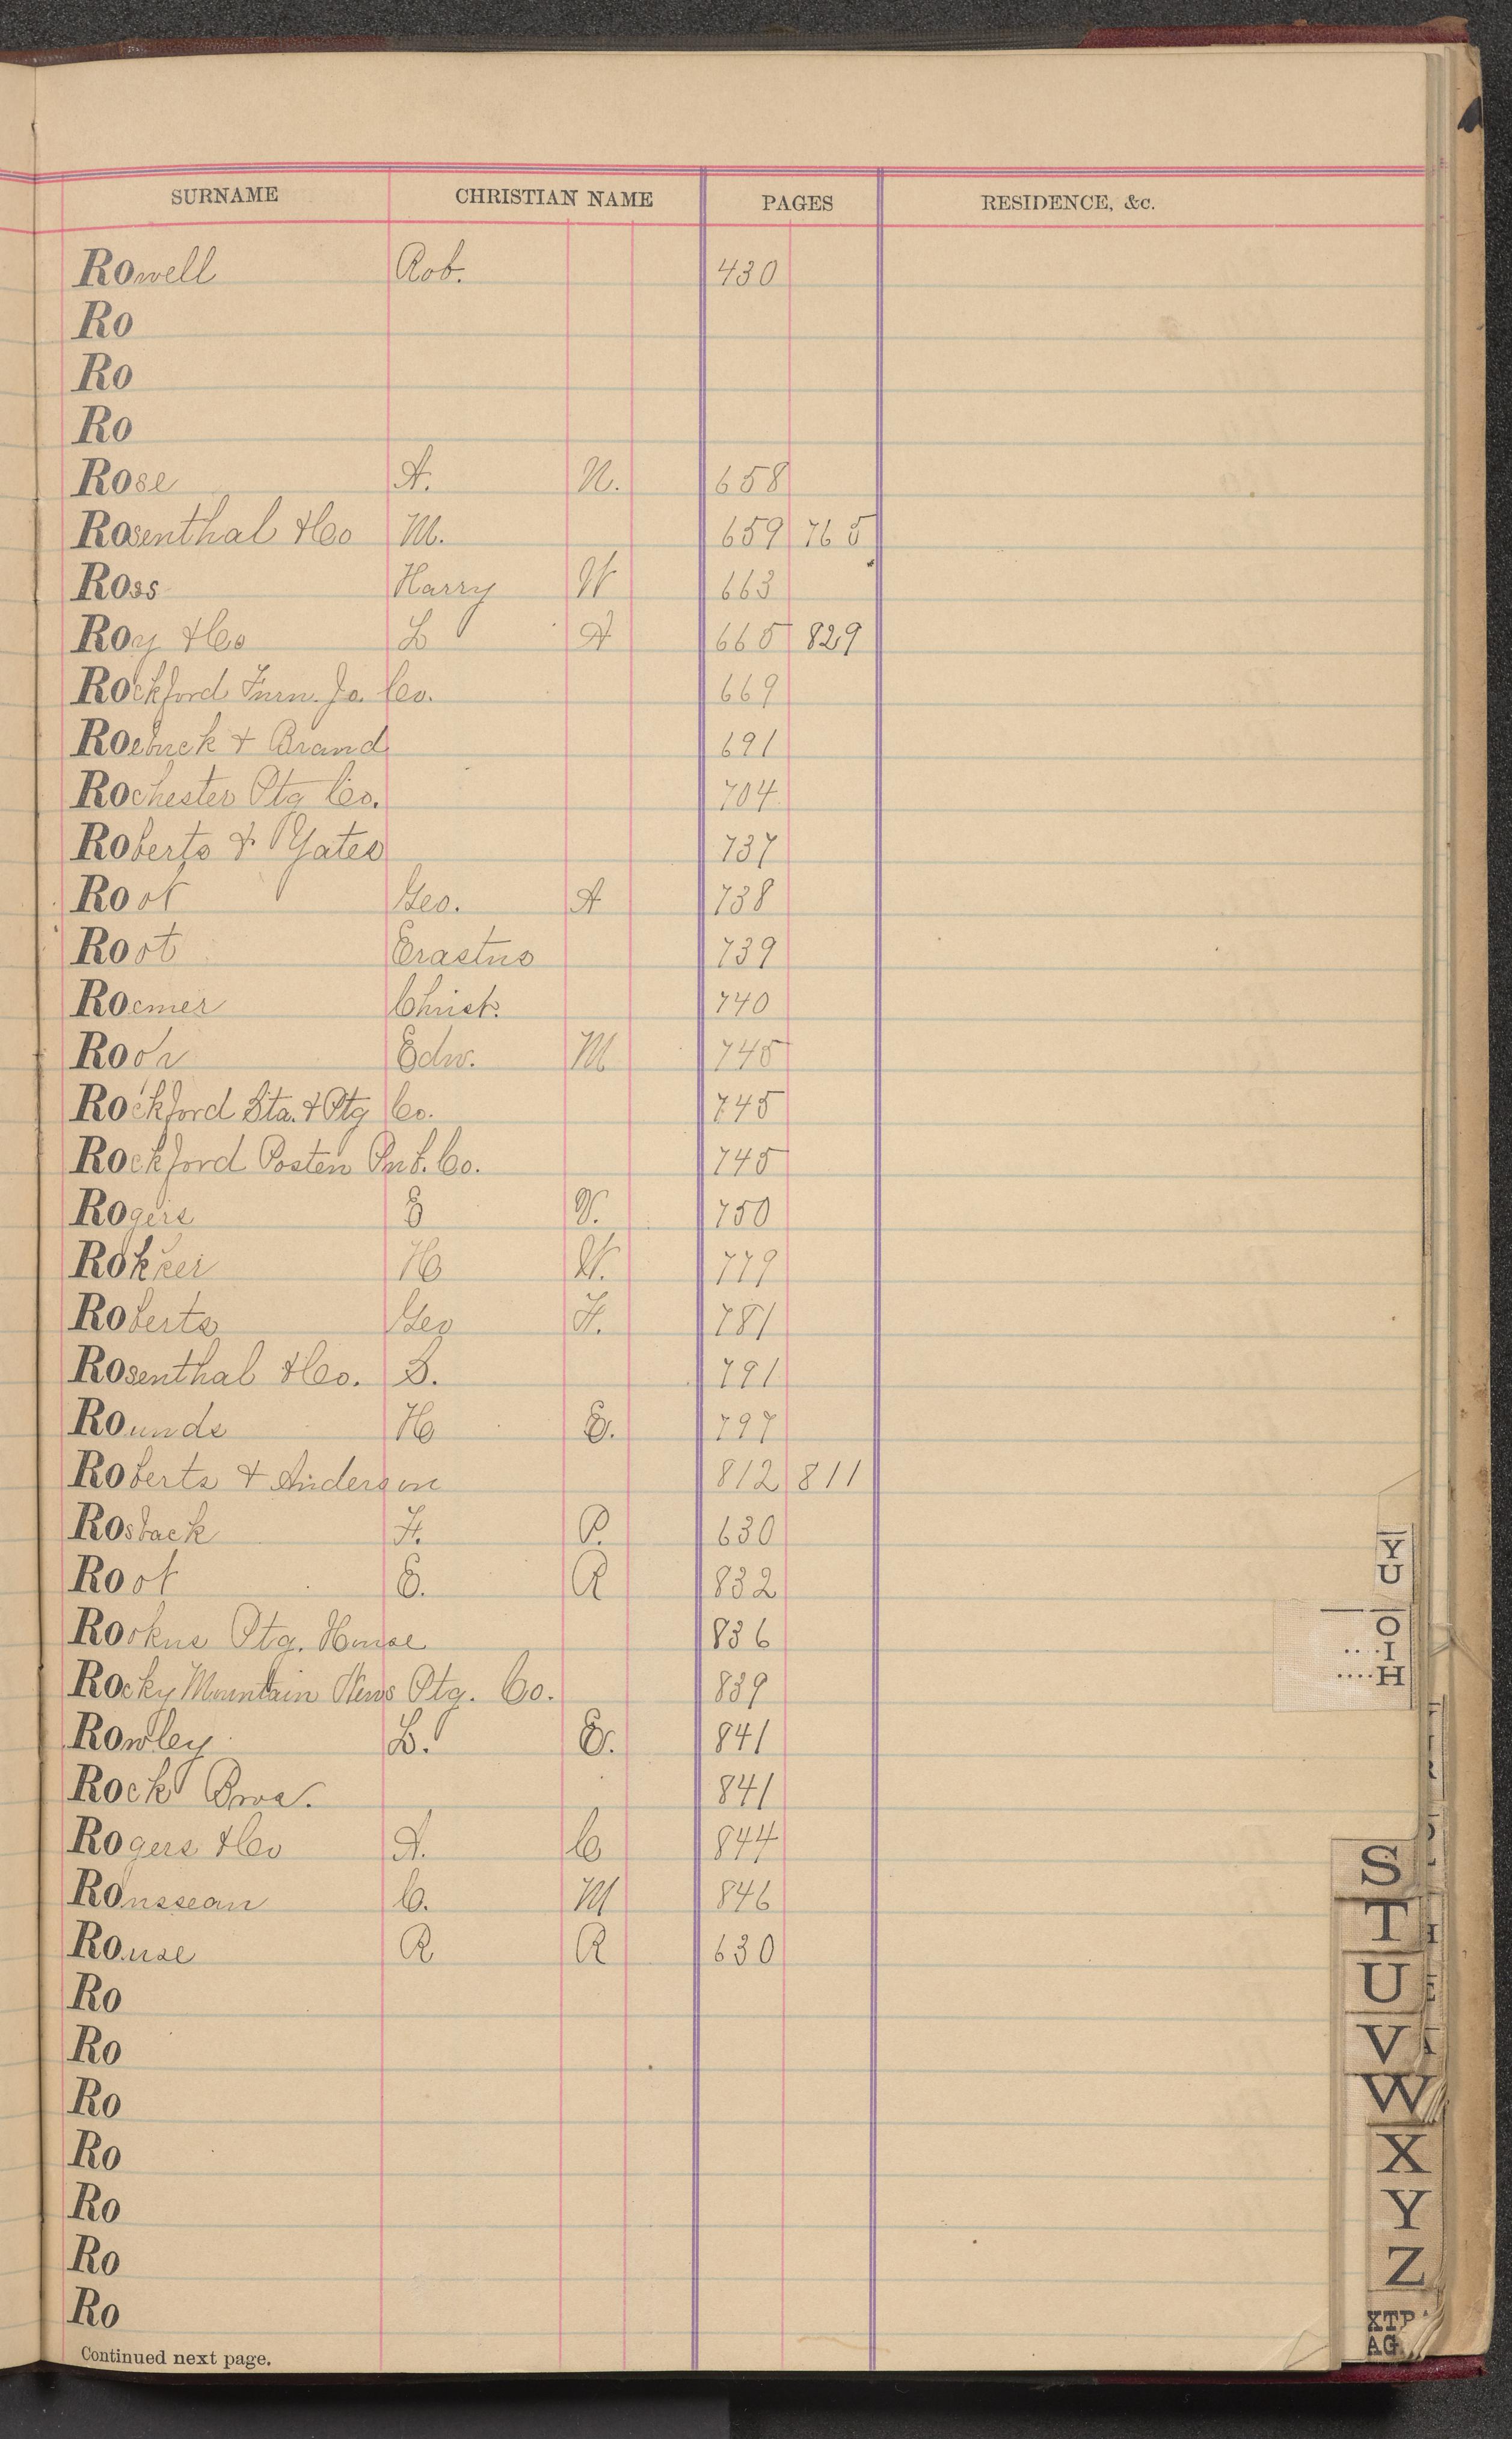 SURNAME CHRISTIAN NAME PAGES RESIDENCE, &c.
Rowell Rob. 430
Ro
Ro
Ro
Rose A. N. 658
Rosenthal & Co M. 659 765
Ross Harry W 663
Roy & Co L A 665 829
Rockford Furn. Jo. Co. 669
Roebuck & Brand 691
Rochester Ptg Co. 704
Roberts & Yates 737
Root Geo. A 738
Root Erastus 739
Roemer Christ. 740
Edw. M 745
Rockford Sta. & Ptg Co. 745
Rockford Posten Pub. Co. 745
Rogers E V. 750
Rokker H W. 779
Roberts Geo F. 781
Rosenthal & Co. S. 791
Rounds H E. 797
Roberts & Anderson 812 811
Rosback F. P. 630
Root E. R 832
Rookus Ptg. House 836
Rocky Mountain News Ptg. Co. 839
Rowley L. E. 841
Rock Bros. 841
Rogers & Co A. C 844
Rousseau C. M 846
Rouse R R 630
Ro
Ro
Ro
Ro
Ro
Ro
Ro
Continued next page.
YU
O
I
H
S
T
U
V
W
X
Y
Z